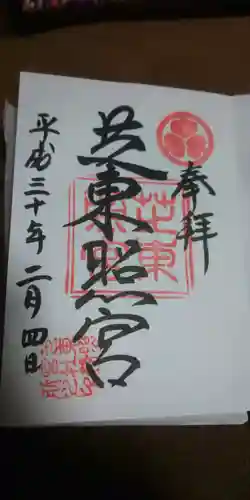 奉拝
芝東照宮
芝東照宮
平成三十年二月四日